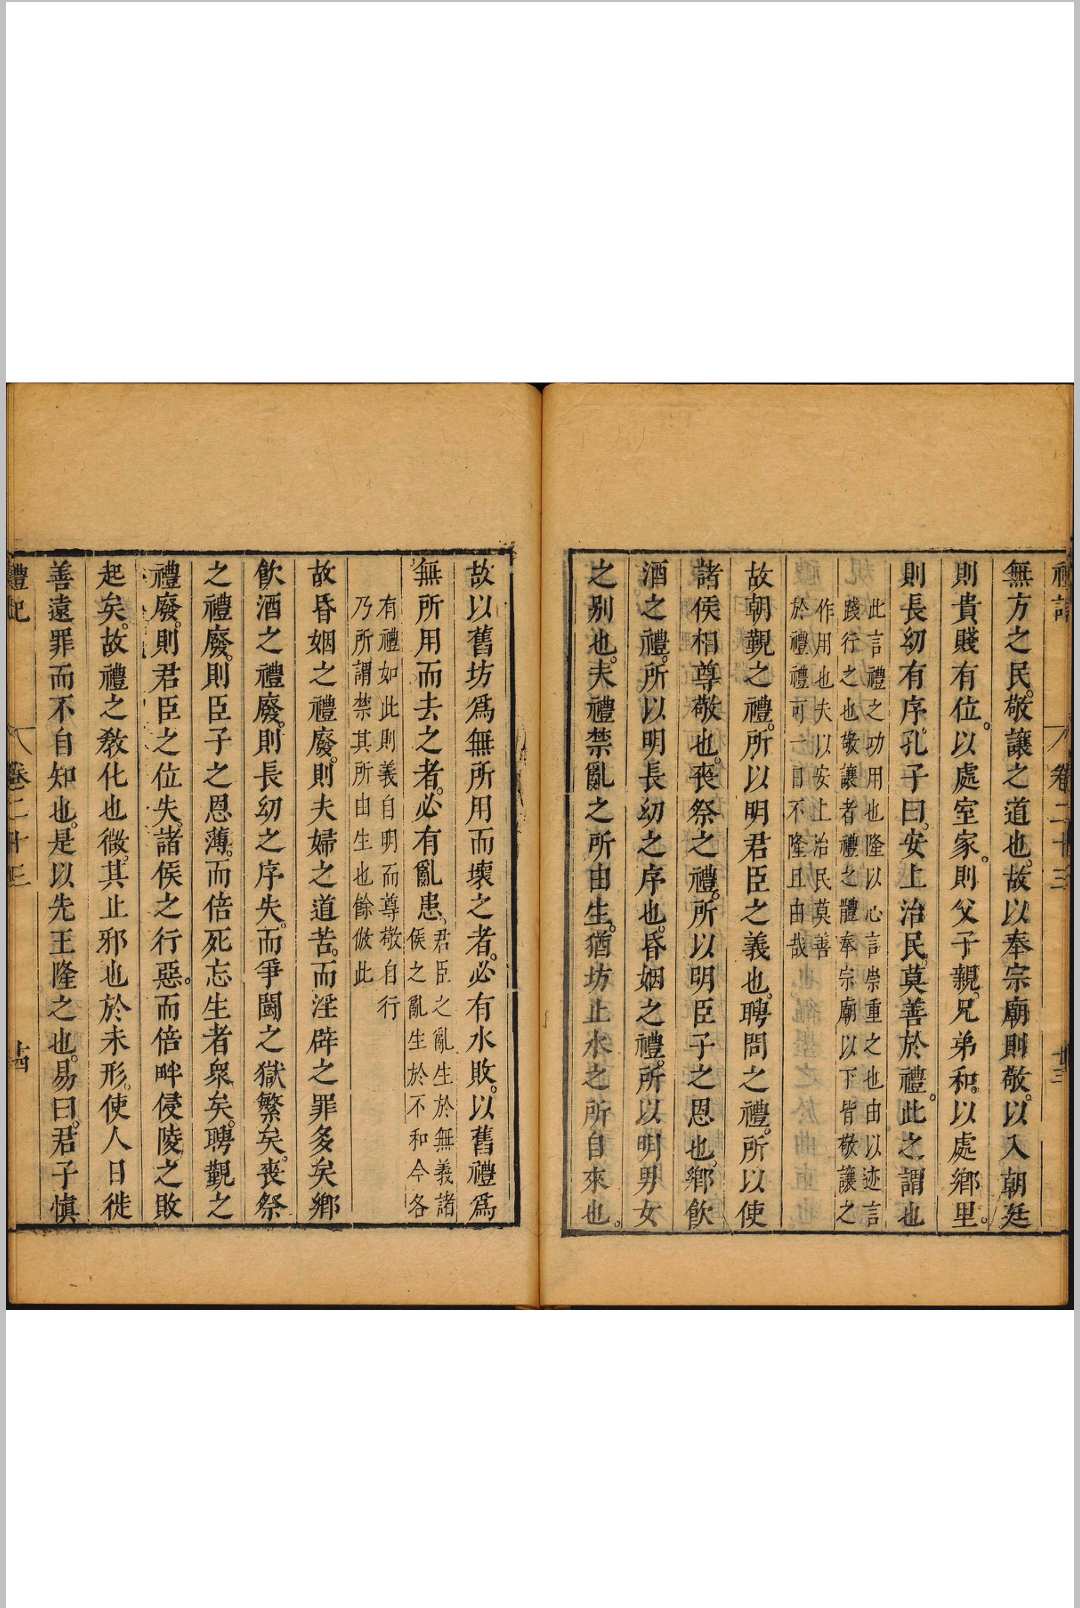 禮記
卷二十三
廿三
無方之民。敬讓之道也。故以奉宗廟則敬。以入朝廷
則貴賤有位。以處室家。則父子親。兄弟和。以處鄉里。
則長幼有序。孔子曰。安上治民。莫善於禮。此之謂也
此言禮之功用也隆以心言崇重之也由以迹言
踐行之也敬讓者禮之體奉宗廟以下皆敬讓之
作用也夫以安上治民莫善
於禮禮可一日不隆且由哉
故朝覲之禮。所以明君臣之義也。聘問之禮。所以使
諸侯相尊敬也。喪祭之禮。所以明臣子之恩也。鄉飲
酒之禮。所以明長幼之序也。昏姻之禮。所以明男女
之别也。夫禮禁亂之所由生。猶坊止水之所自來也。
故以舊坊爲無所用而壞之者。必有水敗。以舊禮爲
無所用而去之者。必有亂患。
君臣之亂生於無義諸
侯之亂生於不和今各
有禮如此則義自明而尊敬自行
乃所謂禁其所由生也餘倣此
故昏姻之禮廢。則夫婦之道苦。而淫辟之罪多矣鄉
飲酒之禮廢。則長幼之序失。而爭鬭之獄繁矣。喪祭
之禮廢。則臣子之恩薄。而倍死忘生者衆矣。聘覲之
禮廢。則君臣之位失。諸侯之行惡。而倍畔侵陵之敗
起矣。故禮之教化也微。其止邪也於未形。使人日徙
善遠罪而不自知也。是以先王隆之也。易曰。君子愼
禮記
卷二十三
廿四